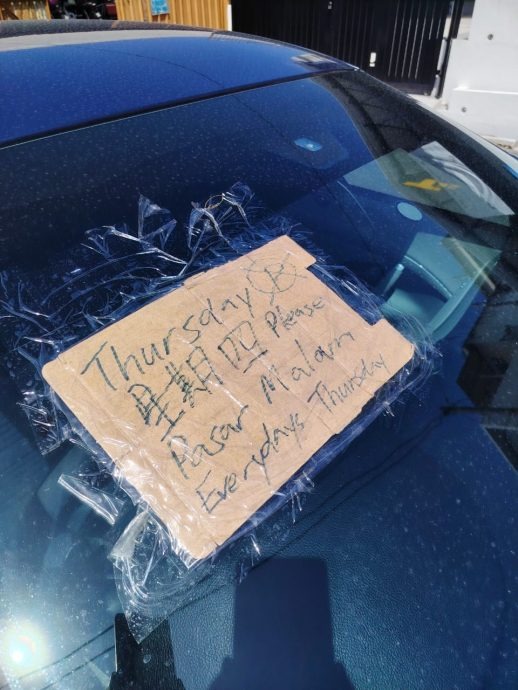 Thursday Ⓟ
星期四 Please
Pasar Malam
Everydays Thursday